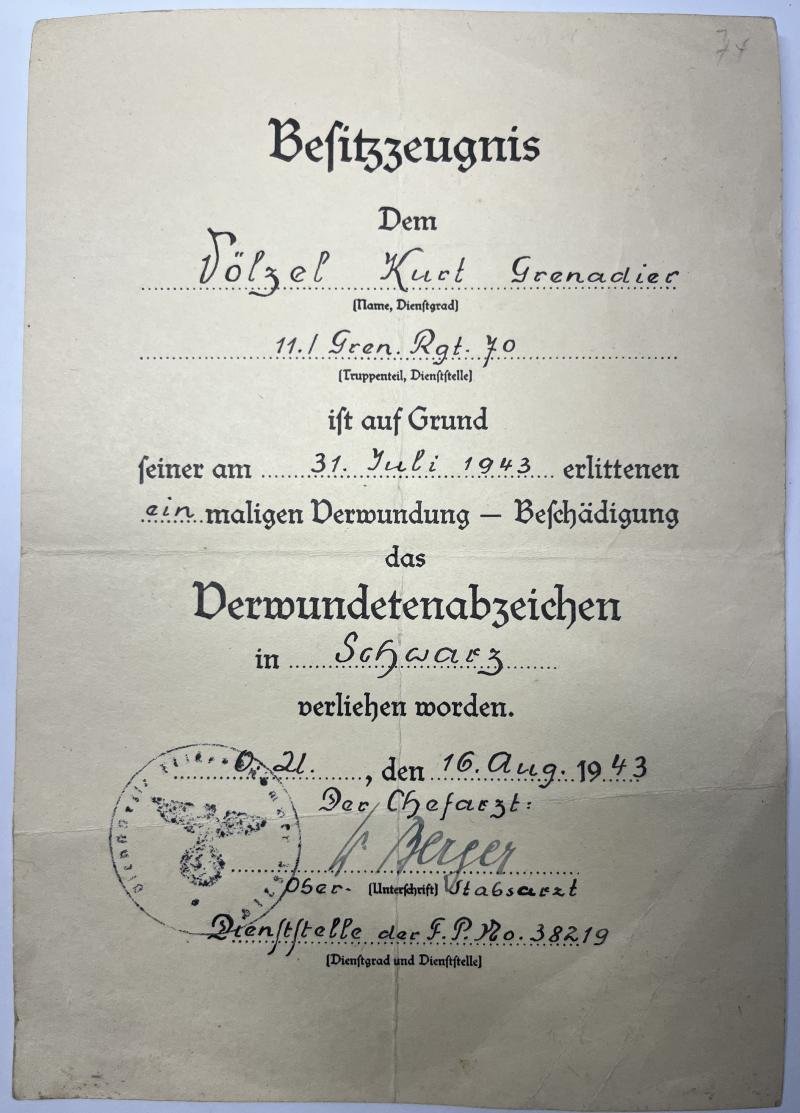 74
Besitzzeugnis
Dem
Völzel Kurt Grenadier
(Name, Dienstgrad)
11./ Gren. Rgt. 70
(Truppenteil, Dienststelle)
ist auf Grund
seiner am 31. Juli 1943 erlittenen
ein maligen Verwundung — Beschädigung
das
Verwundetenabzeichen
in Schwarz
verliehen worden.
O. U. , den 16. Aug. 1943
Der Chefarzt:
Berger
Ober- (Unterschrift) Stabsarzt
Dienststelle der F. P. No. 38219
(Dienstgrad und Dienststelle)